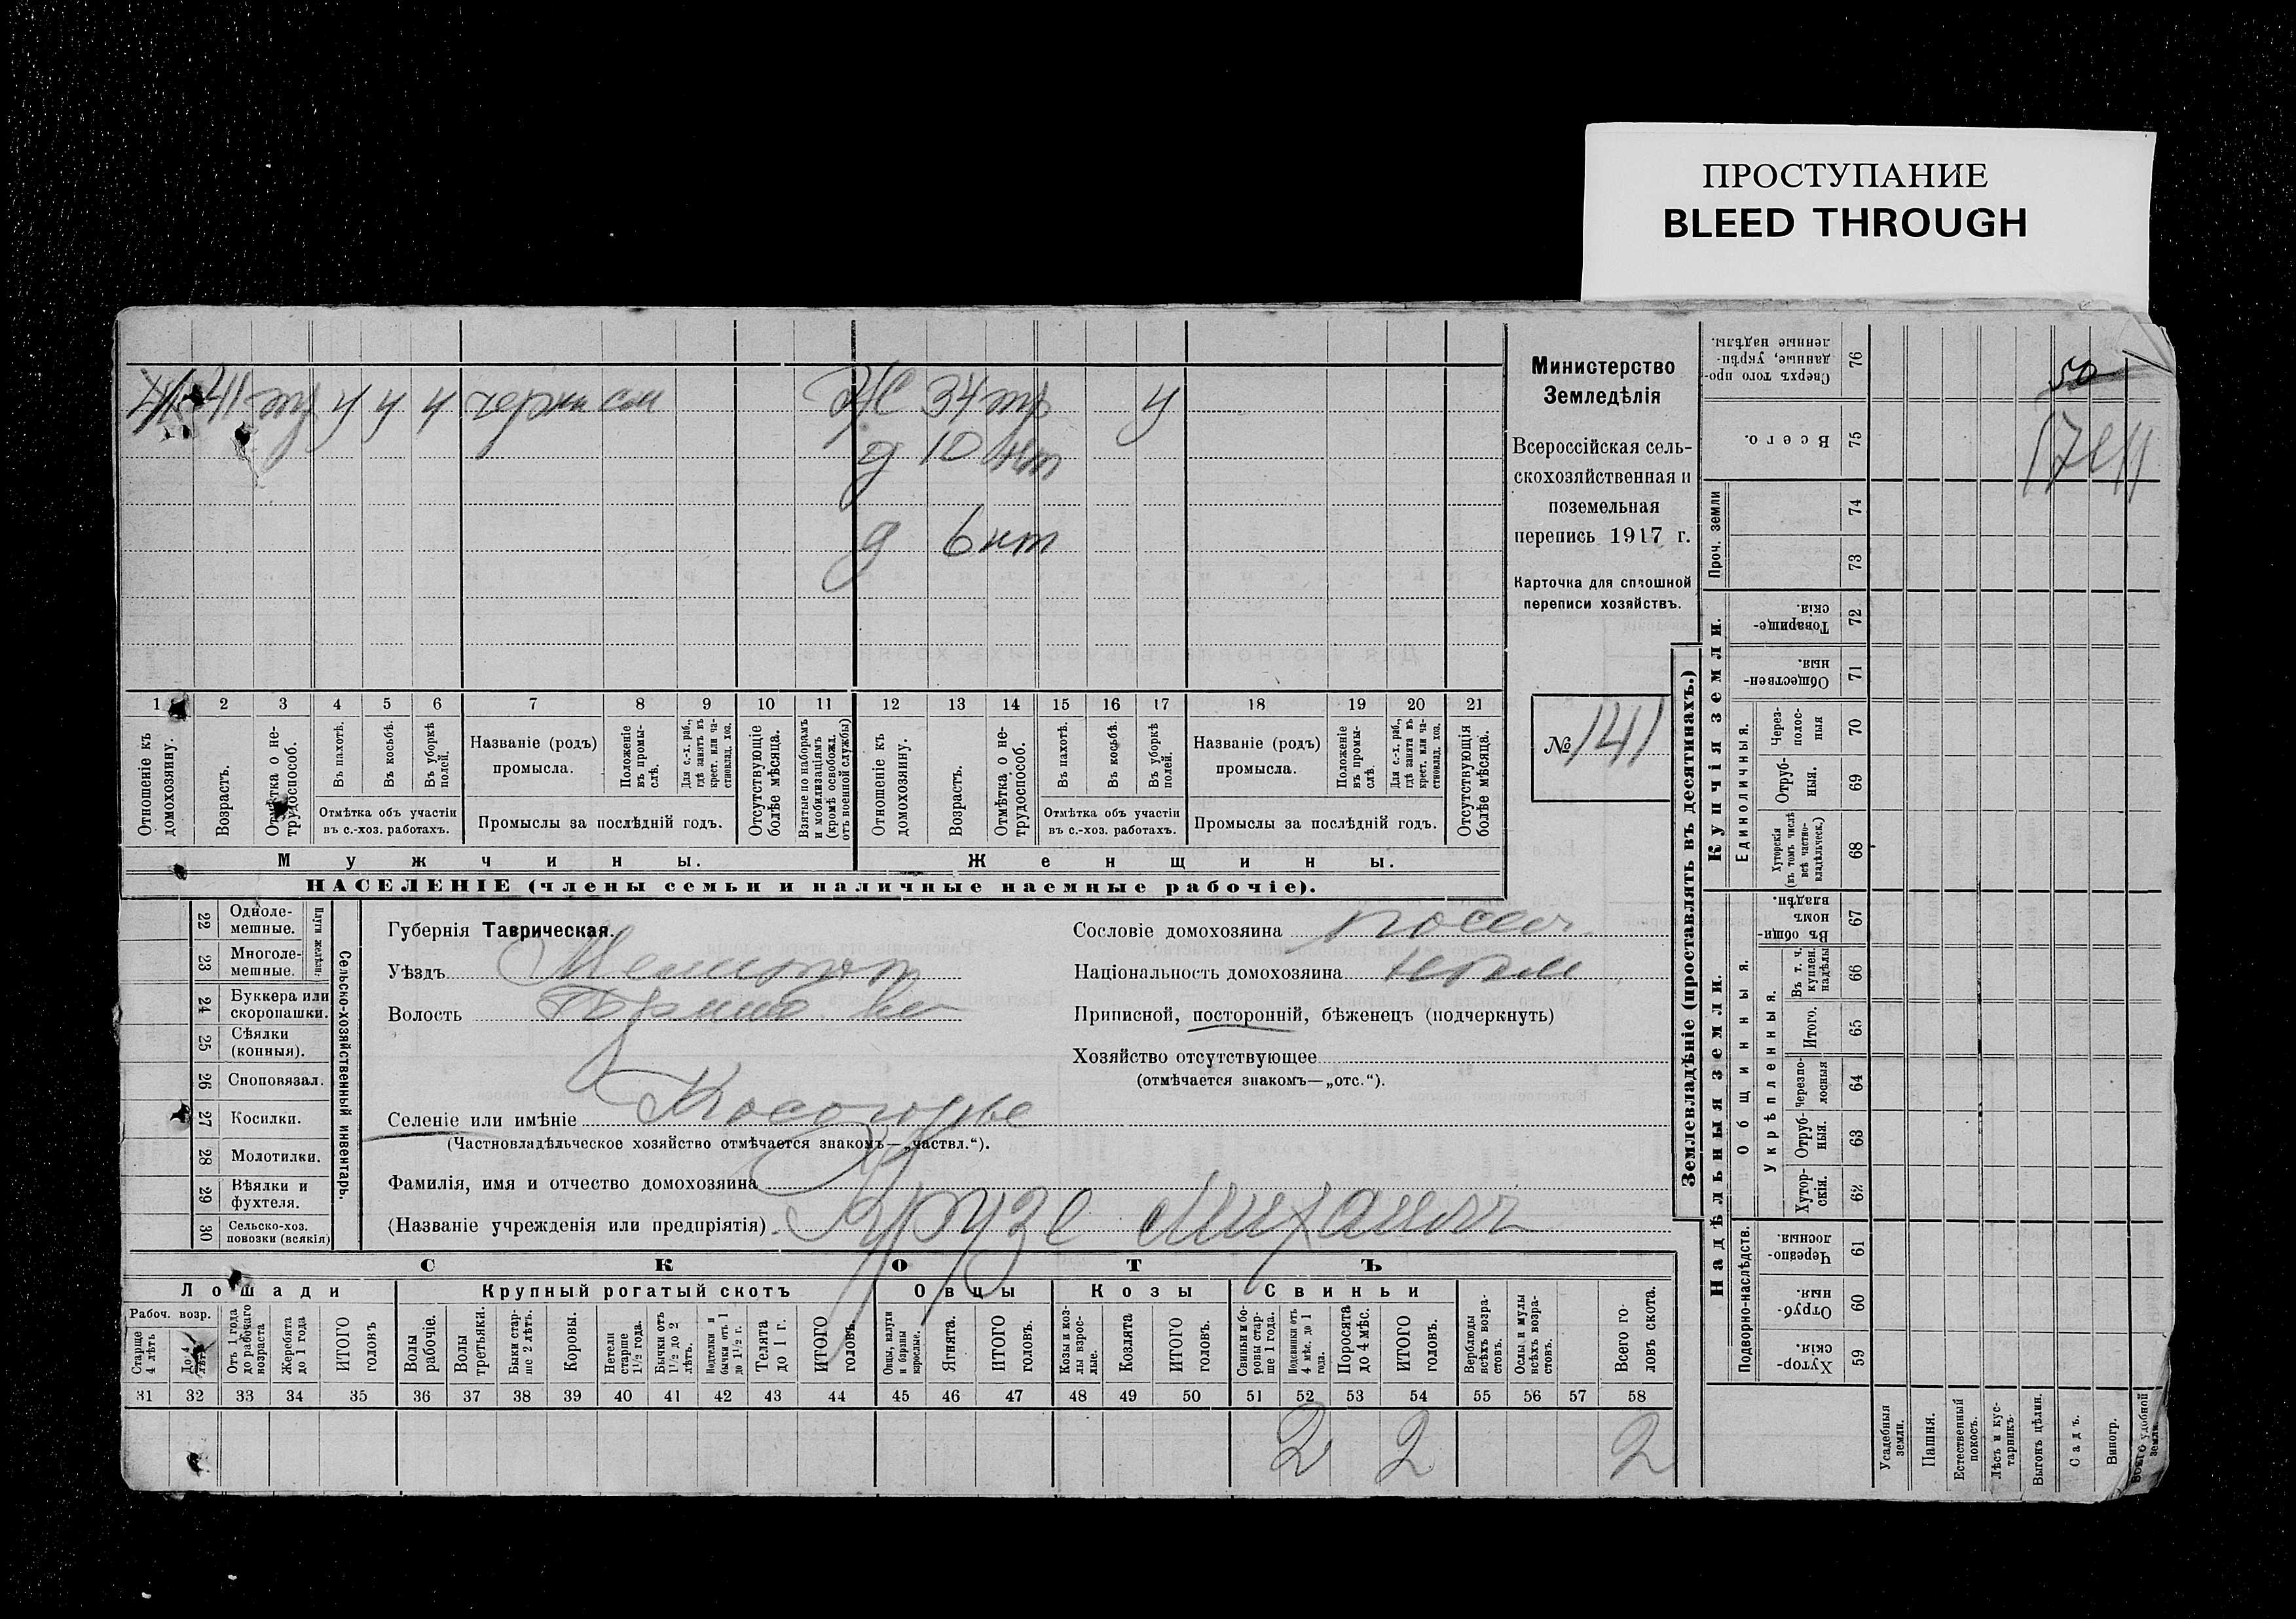 ПРОСТУПАНИЕ
BLEED THROUGH
Министерство
Земледѣлія
Всероссійская сель-
скохозяйственная и
поземельная
перепись 1917 г.
Карточка для сплошной
переписи хозяйствъ.
№ 141
41 тр у у у
Ж 34 тр у
д 10 нт
д 6 нт
1 2 3 4 5 6 7 8 9 10 11 12 13 14 15 16 17 18 19 20 21
Отношеніе къ домохозяину.
Возрастъ.
Отмѣтка о не-трудоспособ.
Въ пахотѣ.
Въ косьбѣ.
Въ уборкѣ полей.
Отмѣтка объ участіи въ с.-хоз. работахъ.
Названіе (родъ) промысла.
Положеніе въ промы-слѣ.
Для с.-х. раб., гдѣ занятъ въ крест. или ча-стновлад. хоз.
Промыслы за послѣдній годъ.
Отсутствующіе болѣе мѣсяца.
Взятые по наборамъ и мобилизаціямъ (кромѣ освобожд. отъ военной службы)
Отношеніе къ домохозяину.
Возрастъ.
Отмѣтка о не-трудоспособ.
Въ пахотѣ.
Въ косьбѣ.
Въ уборкѣ полей.
Отмѣтка объ участіи въ с.-хоз. работахъ.
Названіе (родъ) промысла.
Положеніе въ промы-слѣ.
Для с.-х. раб., гдѣ занята въ крест. или ча-стновлад. хоз.
Промыслы за послѣдній годъ.
Отсутствующія болѣе мѣсяца.
Мужчины.
Женщины.
НАСЕЛЕНІЕ (члены семьи и наличные наемные рабочіе).
22 Одноле-мешные.
23 Многоле-мешные.
Плуги желѣзн.
24 Буккера или скоропашки.
25 Сѣялки (конныя).
26 Сноповязал.
27 Косилки.
28 Молотилки.
29 Вѣялки и фухтеля.
30 Сельско-хоз. повозки (всякія)
Сельско-хозяйственный инвентарь.
Губернія Таврическая.
Уѣздъ Мелитоп
Волость
Селеніе или имѣніе Косогорье
(Частновладѣльческое хозяйство отмѣчается знакомъ—„частвл.“).
Фамилія, имя и отчество домохозяина
(Названіе учрежденія или предпріятія)
Сословіе домохозяина посел
Національность домохозяина
Приписной, посторонній, бѣженецъ (подчеркнуть)
Хозяйство отсутствующее
(отмѣчается знакомъ—„отс.“).
СКОТЪ
Лошади
Рабоч. возр.
Крупный рогатый скотъ
Овцы
Козы
Свиньи
Старше 4 лѣтъ
До 4 лѣтъ
Отъ 1 года до рабочаго возраста
Жеребята до 1 года
ИТОГО головъ
Волы рабочіе.
Волы третьяки.
Быки стар-ше 2 лѣтъ.
Коровы.
Нетели старше 1½ года.
Бычки отъ 1½ до 2 лѣтъ.
Подтелки и бычки отъ 1 до 1½ г.
Телята до 1 г.
ИТОГО головъ.
Овцы, валухи и бараны взрослые.
Ягнята.
ИТОГО головъ.
Козы и коз-лы взрос-лые.
Козлята
ИТОГО головъ.
Свиньи и бо-ровы стар-ше 1 года.
Подсвинки отъ 4 мѣс. до 1 года.
Поросята до 4 мѣс.
ИТОГО головъ.
Верблюды всѣхъ возра-стовъ.
Ослы и мулы всѣхъ возра-стовъ.
Всего го-ловъ скота.
31 32 33 34 35 36 37 38 39 40 41 42 43 44 45 46 47 48 49 50 51 52 53 54 55 56 57 58
2 2 2
Землевладѣніе (проставлять въ десятинахъ.)
Надѣльныя земли.
Купчія земли.
Проч. земли
Подворно-наслѣдств.
Общинныя.
Укрѣпленныя.
Единоличныя.
Сверхъ того про-данные, укрѣп-ленные надѣлы. 76
Всего. 75
74
73
Товарище-скія. 72
Обществен-ныя. 71
Через-полос-ныя 70
Отруб-ныя. 69
Хуторскія (въ томъ числѣ всѣ частно-владѣльческ.) 68
Въ общин-номъ владѣн. 67
Въ т. ч. куплен. надѣлы 66
Итого. 65
Черезпо-лосныя 64
Отруб-ныя. 63
Хутор-скія. 62
Черезпо-лосныя 61
Отруб-ныя. 60
Хутор-скія. 59
Усадебныя земли.
Пашня.
Естественный покосъ.
Лѣсъ и кус-тарникъ.
Выгонъ цѣлин.
Садъ.
Виногр.
Всего удобной земли.
50